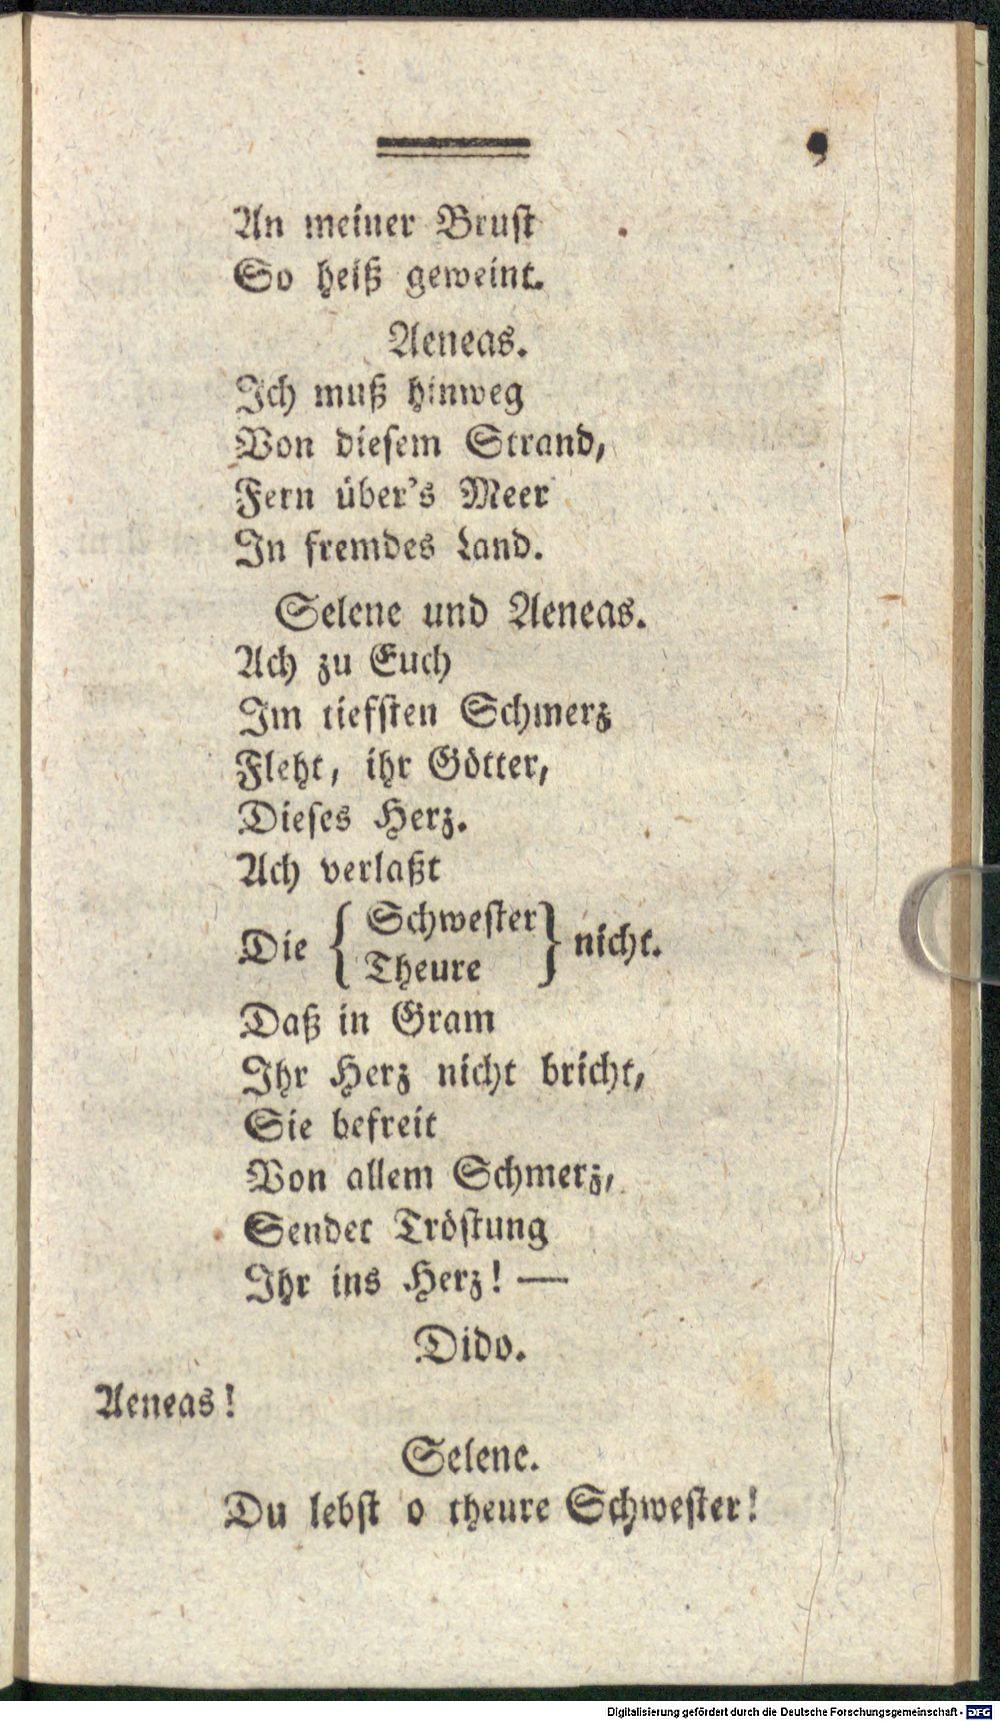 9
An meiner Brust
So heiß geweint.
Aeneas.
Ich muß hinweg
Von diesem Strand,
Fern über's Meer
In fremdes Land.
Selene und Aeneas.
Ach zu Euch
Im tiefsten Schmerz
Fleht, ihr Götter,
Dieses Herz.
Ach verlaßt
Die { Schwester
Theure } nicht.
Daß in Gram
Ihr Herz nicht bricht,
Sie befreit
Von allem Schmerz,
Sendet Tröstung
Ihr ins Herz! —
Dido.
Aeneas!
Selene.
Du lebst o theure Schwester!
Digitalisierung gefördert durch die Deutsche Forschungsgemeinschaft - DFG